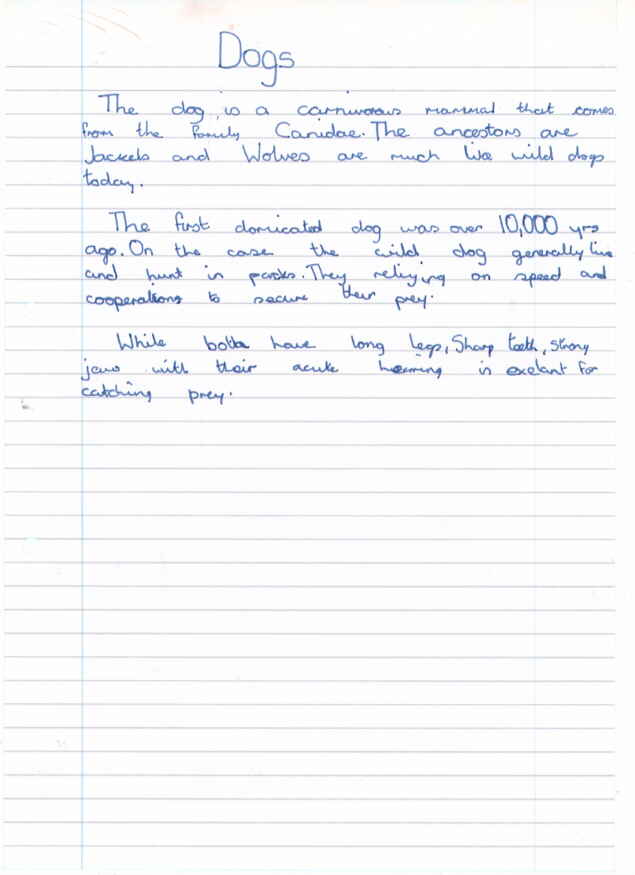 Dogs
The dog is a carnivorous mammal that comes
from the Family Canidae. The ancestors are
Jackels and Wolves are much like wild dogs
today.
The first domicated dog was over 10,000 yrs
ago. On the case the wild dog generally live
and hunt in packs. They reliying on speed and
cooperations to secure their prey.
While both have long legs, Sharp teeth, strong
jaws with their acute hearing is exelant for
catching prey.